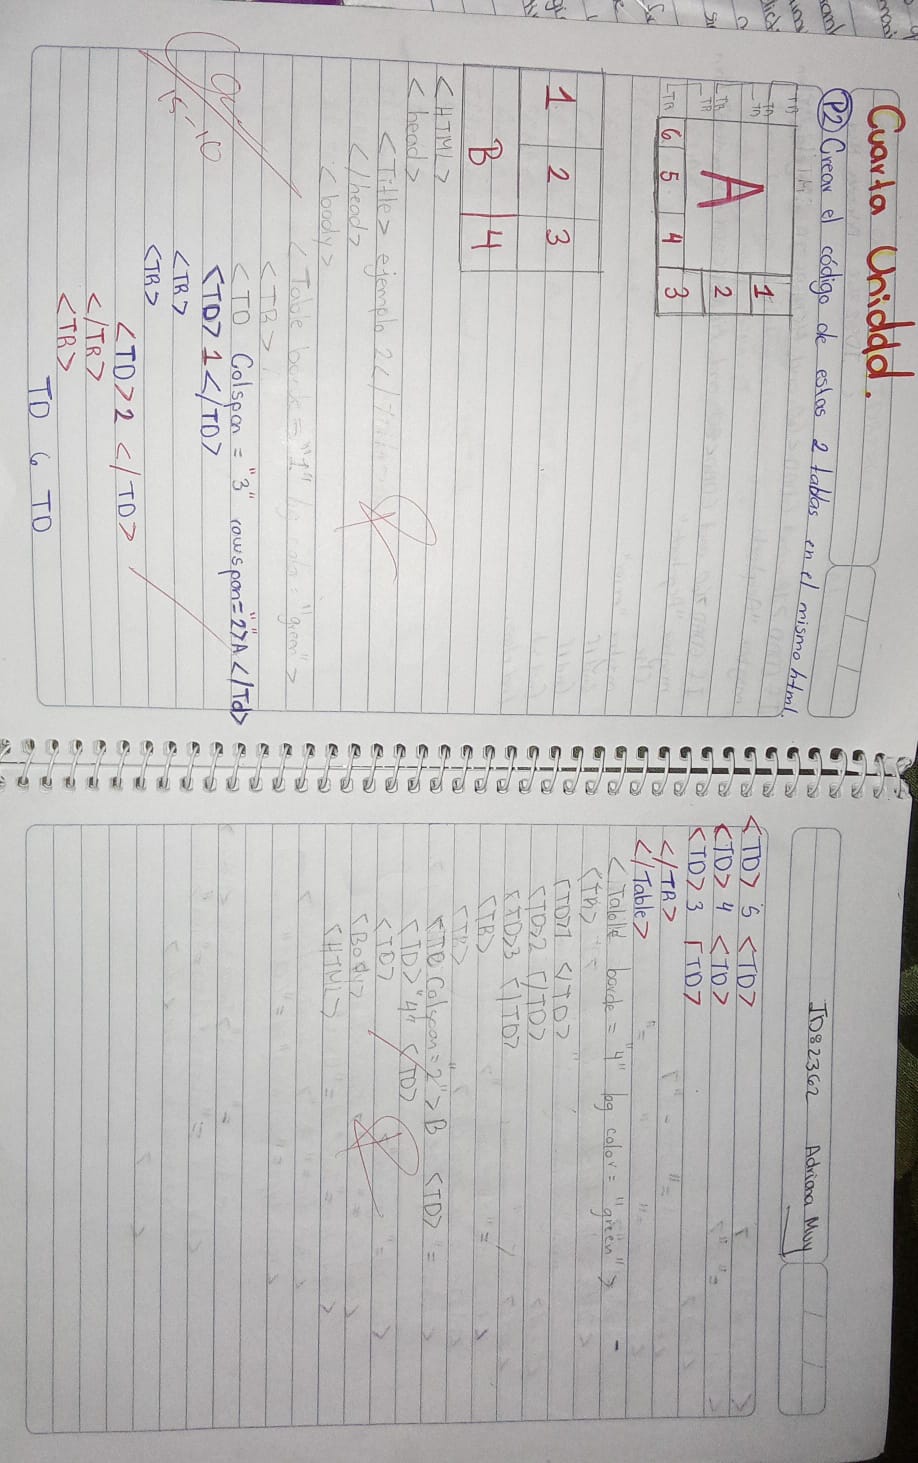 Cuarta Unidad.
P2 Crear el código de estas 2 tablas en el mismo html.
TR
TR
TR
TR
TR
A
1
2
6 5 4 3
1 2 3
B 4
<HTML>
<head>
<Title> ejemplo 2</
</head>
<body>
<Table borde = "1" bg colo = "green">
<TR>
<TD Colspan = "3" rowspan="2">A</Td>
<TD>1</TD>
<TR>
<TR>
<TD>2 </TD>
</TR>
<TR>
TD 6 TD
15-10
JD82362 Adriana Muy
<TD> 5 <TD>
<TD> 4 <TD>
<TD> 3 <TD>
</TR>
</Table>
<Table borde = "4" bg color = "green">
<TR>
<TD>1 </TD>
<TD>2 </TD>
<TD>3 </TD>
<TR>
<TR>
Colspan = "2"> B <TD>
<TD> "4" <TD>
<TD>
<Body>
<HTML>